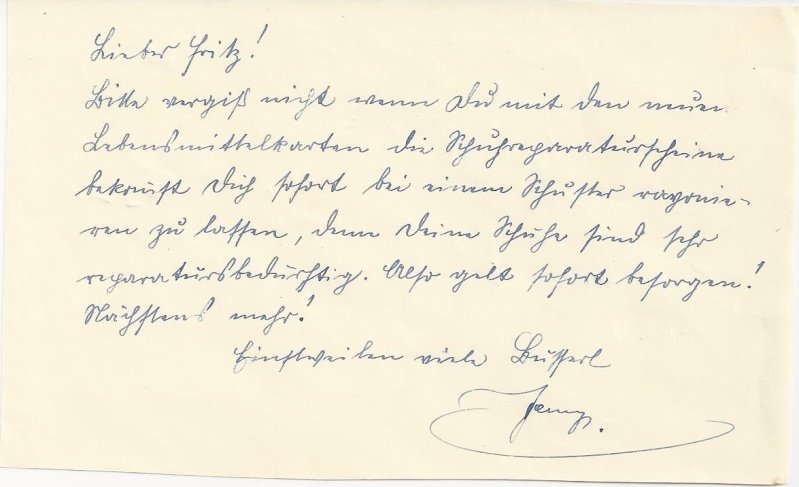 Lieber Fritz!
Bitte vergiß nicht wenn Du mit den neuen
Lebensmittelkarten die Schuhreparaturscheine
bekommst Dich sofort bei einem Schuster rayonie-
ren zu lassen, denn Deine Schuhe sind sehr
reparatursbedürftig. Also gelt sofort besorgen!
Nächstens mehr!
Einstweilen viele Busserl